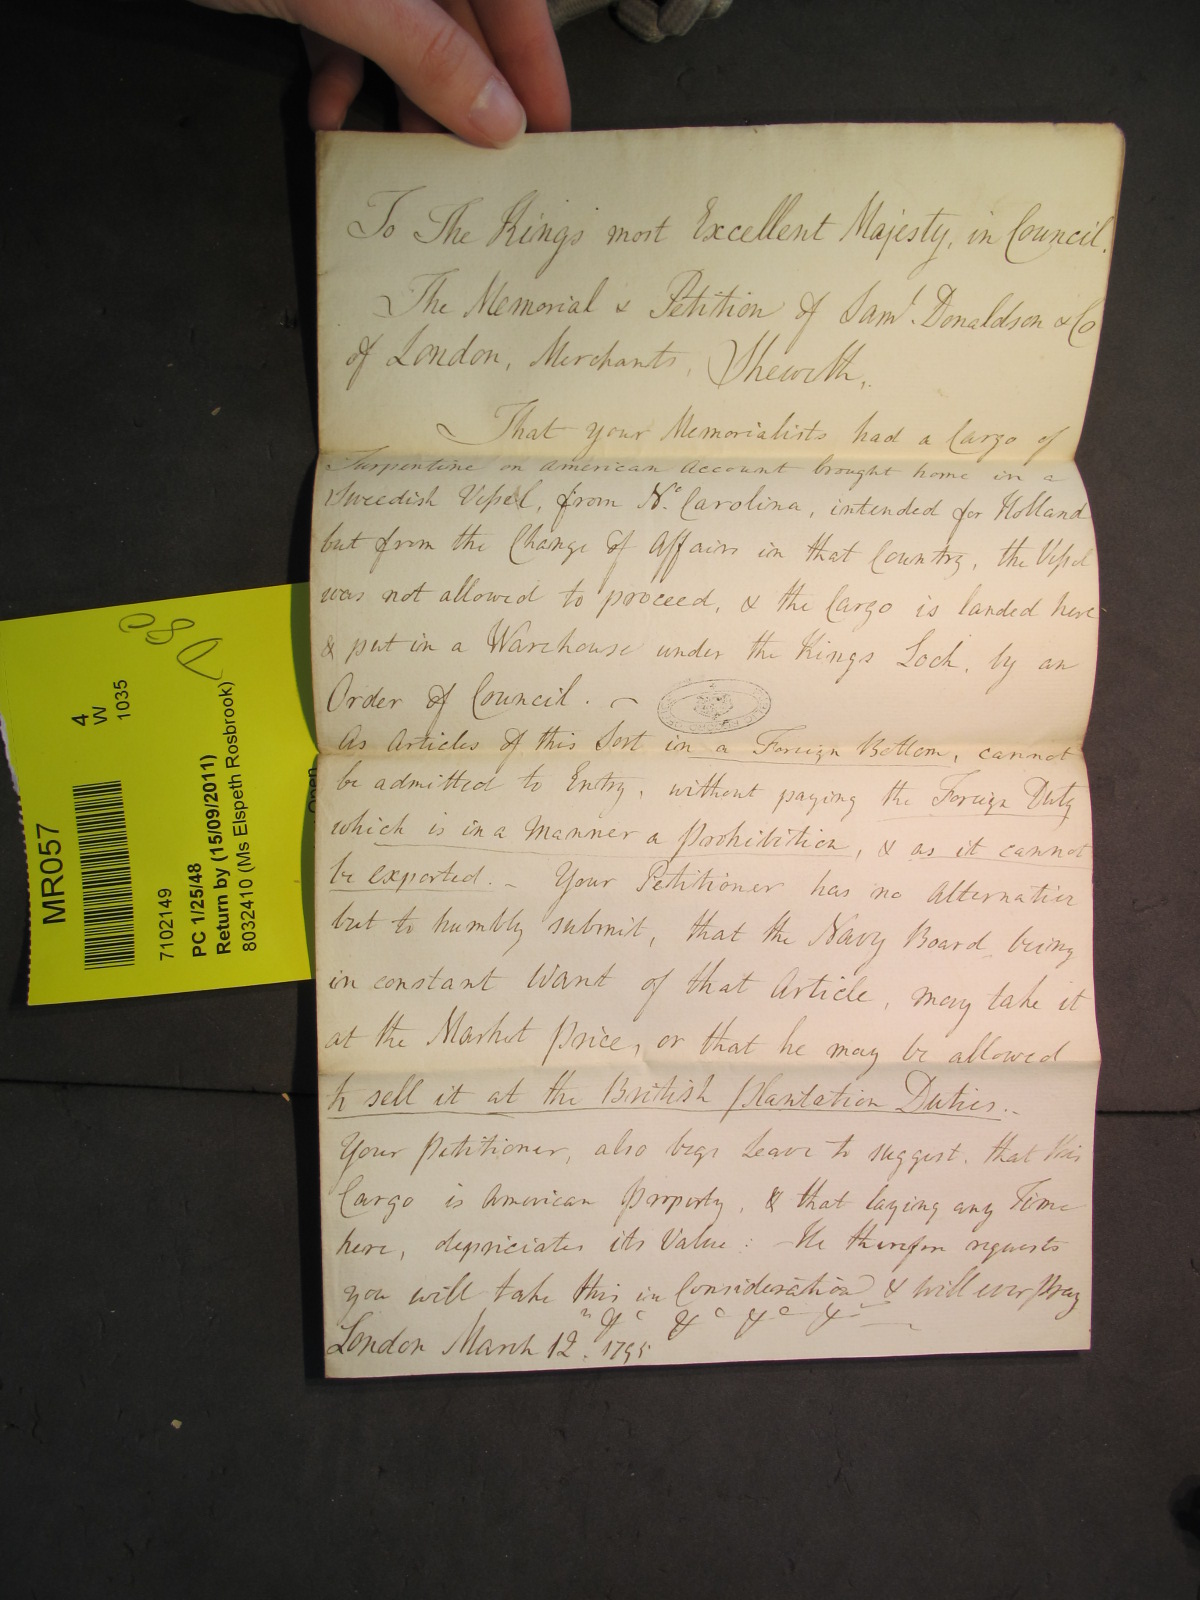 To The Kings most Excellent Majesty, in Council.
The Memorial & Petition of Saml. Donaldson & Co
of London, Merchants, Sheweth,
That your Memorialists had a Cargo of
Turpentine on American Account brought home in a
Swedish Vessel, from No. Carolina, intended for Holland
but from the Change of Affairs in that Country, the Vessel
was not allowed to proceed, & the Cargo is landed here
& put in a Warehouse under the Kings Lock, by an
Order of Council. ~
As Articles of this Sort in a Foreign Bottom, cannot
be admitted to Entry, without paying the Foreign Duty
which is in a manner a prohibition, & as it cannot
be exported. - Your Petitioner has no Alternative
but to humbly submit, that the Navy Board being
in constant Want of that Article, may take it
at the Market price, or that he may be allowed
to sell it at the British plantation Duties..
Your petitioner, also begs Leave to suggest, that this
Cargo is American property, & that laying any Time
here, depriciates its Value: - He therefore requests
you will take this in Consideration & will ever pray
&c &c &c &c
London March 12th 1795
MR057
4
W
1035
7102149
PC 1/25/48
Return by (15/09/2011)
8032410 (Ms Elspeth Rosbrook)
Open